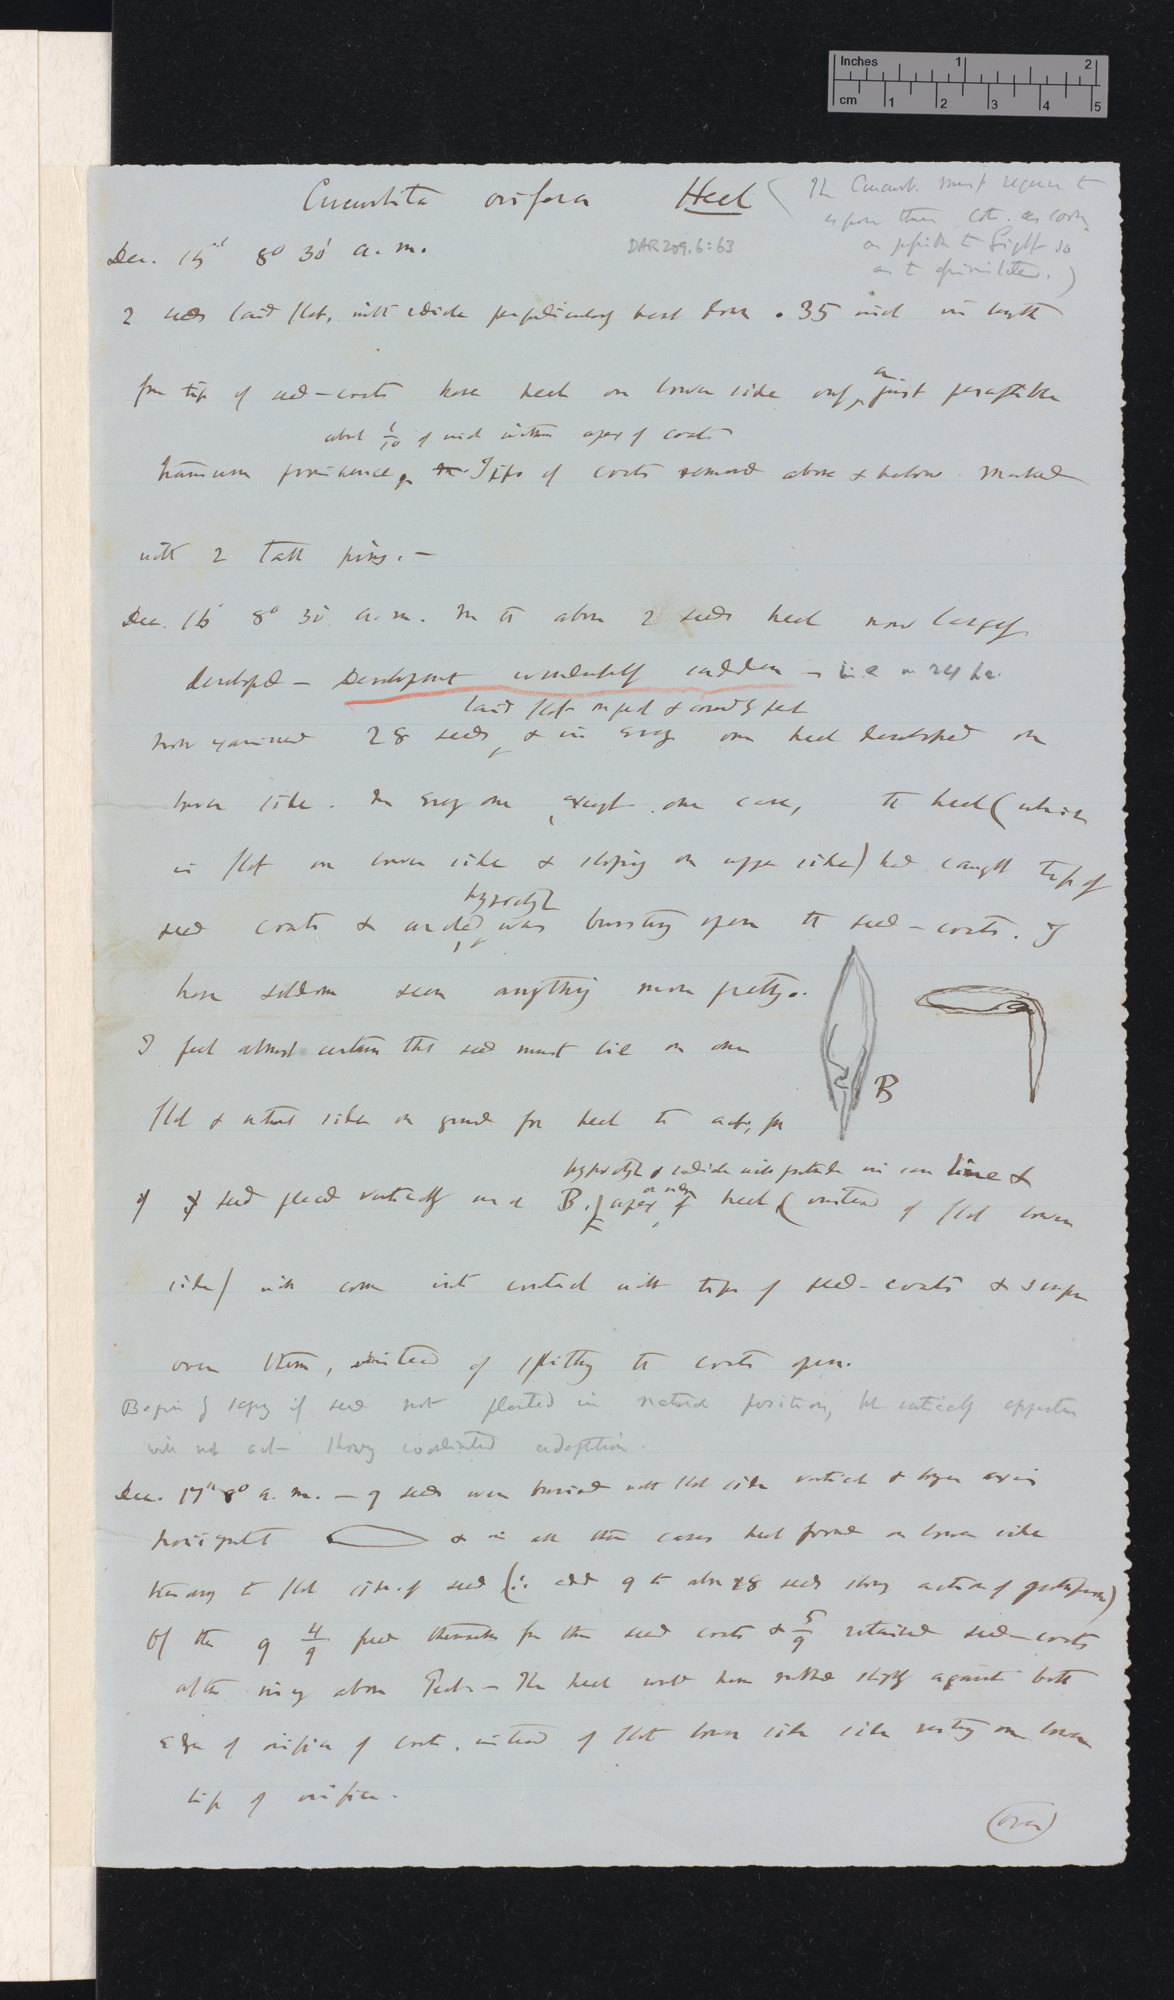 Cucurbita ovifera Heel
(The Cucurb. must require to
expose their cots. as soon
as possible to Light so
as to assimilate.)
DAR 209.6:63
Dec. 15th 8° 30' a. m.
2 seeds laid flat, with radicle perpendicularly bent down .35 inch in length
from tip of seed-coats have heel on lower side only, a just perceptible
about 1/10 of inch within apex of coats
transverse prominence, Tips of coats removed above & below. Marked
with 2 tall pins. —
Dec. 16' 8° 30' a. m. In the above 2 seeds heel now largely
developed — Development wonderfully sudden — i.e in 24 hr.
laid flat on
Now examined 28 seeds, & in every one heel developed on
lower side. In every one, except one case, the heel (which
is flat on lower side & sloping on upper side) had caught tip of
hypocotyl
seed coats & arched was bursting open the seed-coats. I
have seldom seen anything more pretty.
I feel almost certain that seed must lie on one
B
flat & natural side on ground for heel to act, for
hypocotyl & radicle will protrude in one line &
if seed placed vertically as in B. apex of heel (instead of flat lower
side) will come into contact with tip of seed-coats & scrape
over them, instead of splitting the coats open.
Begin by saying if seed not planted in natural position, but vertically apparatus
will not act — showing coordinated adaptation.
Dec. 17th 8° a. m. — 9 seeds were buried with flat side vertical & longer axis
horizontal & in all these cases heel formed on lower side
transv to flat side of seed (∴ add 9 to above 28 seeds showing action of geotropism)
Of the 9 4/9 freed themselves from the seed coats & 5/9 retained seed-coats
after rising above Peat — The heel would have rubbed slightly against both
edges of orifice of coats, instead of flat lower side side resting on lower
tip of orifice.
(over)
Inches 1 2
cm 1 2 3 4 5